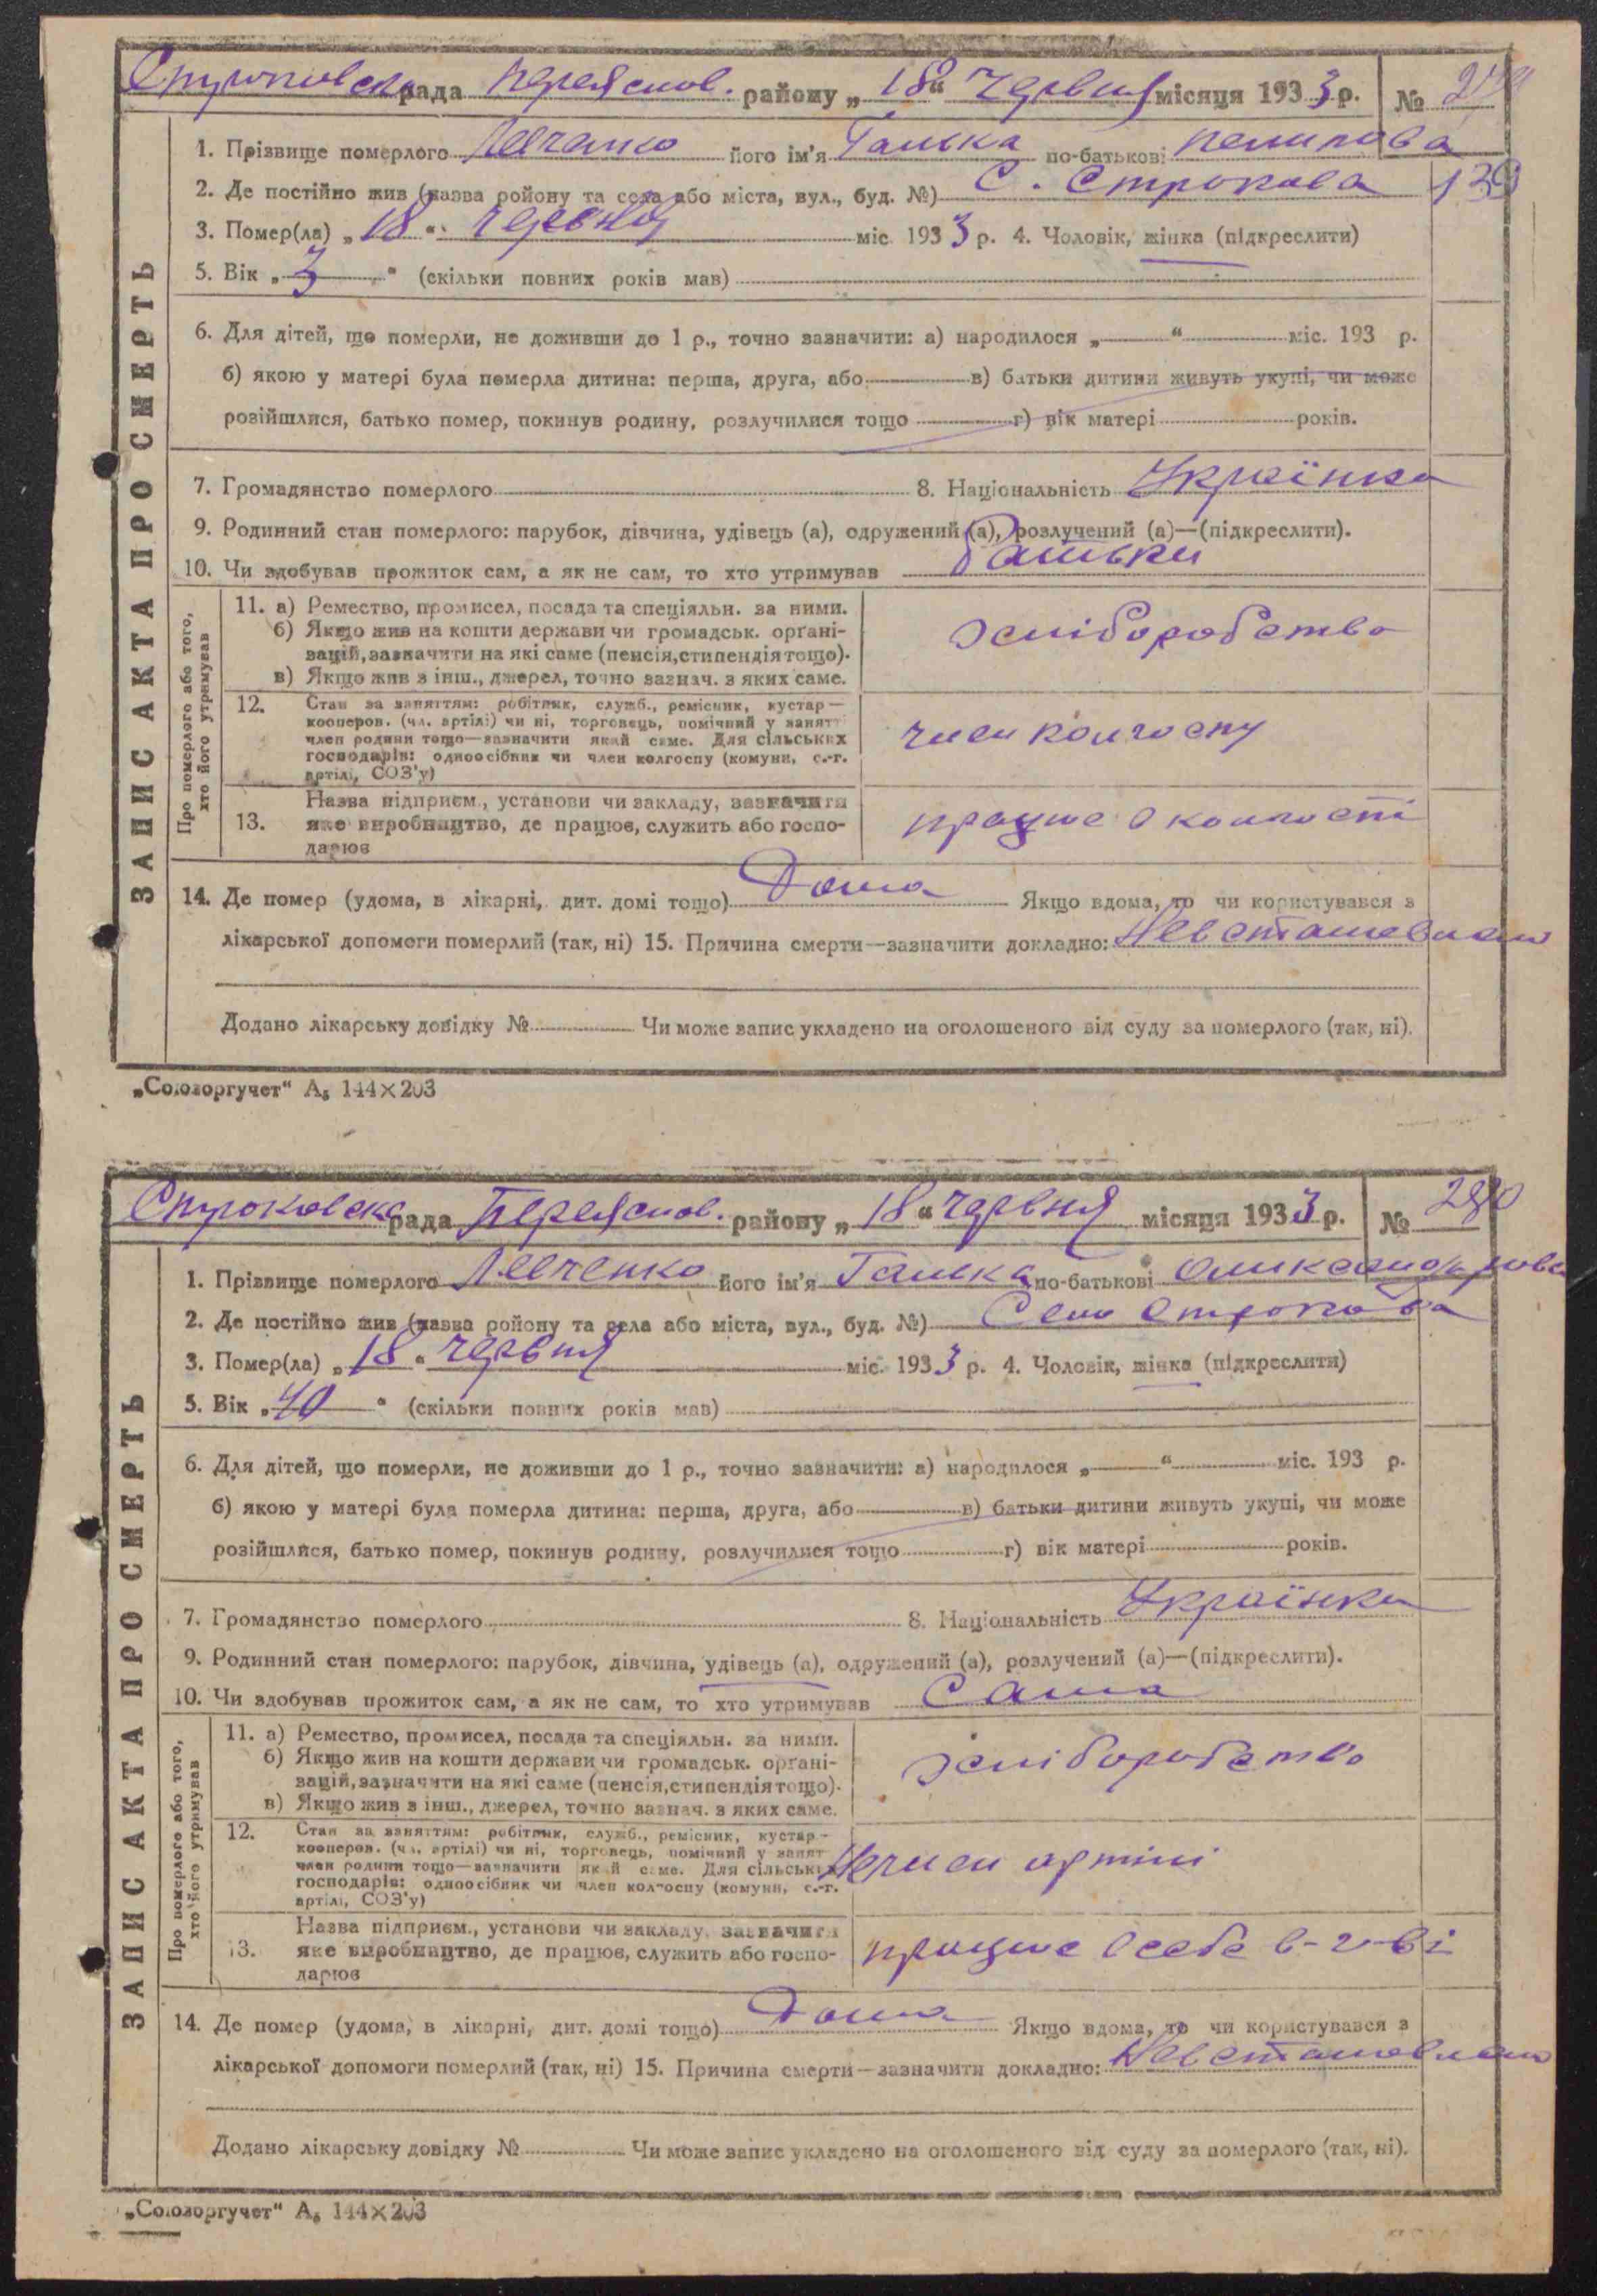 Строковска рада Переяслов. району „18“ Червня місяця 1933 р. №
1. Прізвище померлого його ім'я Галька по-батькові Пилипова
2. Де постійно жив (назва ройону та села або міста, вул., буд. №) С. Строкова 139
3. Помер(ла) „18“ Червня міс. 1933 р. 4. Чоловік, жінка (підкреслити)
5. Вік „3“ (скільки повних років мав)
6. Для дітей, що померли, не доживши до 1 р., точно зазначити: а) народилося „ “ міс. 193 р.
б) якою у матері була померла дитина: перша, друга, або в) батьки дитини живуть укупі, чи може
розійшлися, батько помер, покинув родину, розлучилися тощо г) вік матері років.
7. Громадянство померлого 8. Національність Українка
9. Родинний стан померлого: парубок, дівчина, удівець (а), одружений (а), розлучений (а)—(підкреслити).
10. Чи здобував прожиток сам, а як не сам, то хто утримував батьки
ЗАПИС АКТА ПРО СМЕРТЬ
Про померлого або того, хто його утримував
11. а) Ремество, промисел, посада та спеціяльн. за ними.
б) Якщо жив на кошти держави чи громадськ. орґані-
зацій, зазначити на які саме (пенсія, стипендія тощо).
в) Якщо жив з інш., джерел, точно зазнач. з яких саме.
хліборобство
12. Стан за заняттям: робітник, служб., ремісник, кустар—
кооперов. (чл. артілі) чи ні, торговець, помічний у занятт
член родини тощо—зазначити який саме. Для сільських
господарів: одноосібник чи член колгоспу (комуни, с.-г.
артілі, СОЗ'у)
член колгоспу
13. Назва підприєм., установи чи закладу, зазначити
яке виробництво, де працює, служить або госпо-
дарює
працює в колгоспі
14. Де помер (удома, в лікарні, дит. домі тощо) Дома Якщо вдома, то чи користувався з
лікарської допомоги померлий (так, ні) 15. Причина смерти—зазначити докладно: Невстановлено
Додано лікарську довідку № Чи може запис укладено на оголошеного від суду за померлого (так, ні).
„Союзоргучет“ А₅ 144×203
Строковска рада Переяслов. району „18“ червня місяця 1933 р. № 280
1. Прізвище померлого Левченко його ім'я Галька по-батькові Олександрова
2. Де постійно жив (назва ройону та села або міста, вул., буд. №) Село Строкова
3. Помер(ла) „18“ червня міс. 1933 р. 4. Чоловік, жінка (підкреслити)
5. Вік „40“ (скільки повних років мав)
6. Для дітей, що померли, не доживши до 1 р., точно зазначити: а) народилося „ “ міс. 193 р.
б) якою у матері була померла дитина: перша, друга, або в) батьки дитини живуть укупі, чи може
розійшлися, батько помер, покинув родину, розлучилися тощо г) вік матері років.
7. Громадянство померлого 8. Національність Українка
9. Родинний стан померлого: парубок, дівчина, удівець (а), одружений (а), розлучений (а)—(підкреслити).
10. Чи здобував прожиток сам, а як не сам, то хто утримував Сама
ЗАПИС АКТА ПРО СМЕРТЬ
Про померлого або того, хто його утримував
11. а) Ремество, промисел, посада та спеціяльн. за ними.
б) Якщо жив на кошти держави чи громадськ. орґані-
зацій, зазначити на які саме (пенсія, стипендія тощо).
в) Якщо жив з інш., джерел, точно зазнач. з яких саме.
хліборобство
12. Стан за заняттям: робітник, служб., ремісник, кустар-
кооперов. (чл. артілі) чи ні, торговець, помічний у занят
член родини тощо—зазначити який саме. Для сільських
господарів: одноосібник чи член колгоспу (комуни, с.-г.
артілі, СОЗ'у)
Нечлен артілі
13. Назва підприєм., установи чи закладу, зазначити
яке виробництво, де працює, служить або госпо-
дарює
працює в себе в-г-ві
14. Де помер (удома, в лікарні, дит. домі тощо) Дома Якщо вдома, то чи користувався з
лікарської допомоги померлий (так, ні) 15. Причина смерти—зазначити докладно: Невстановлено
Додано лікарську довідку № Чи може запис укладено на оголошеного від суду за померлого (так, ні).
„Союзоргучет“ А₅ 144×203